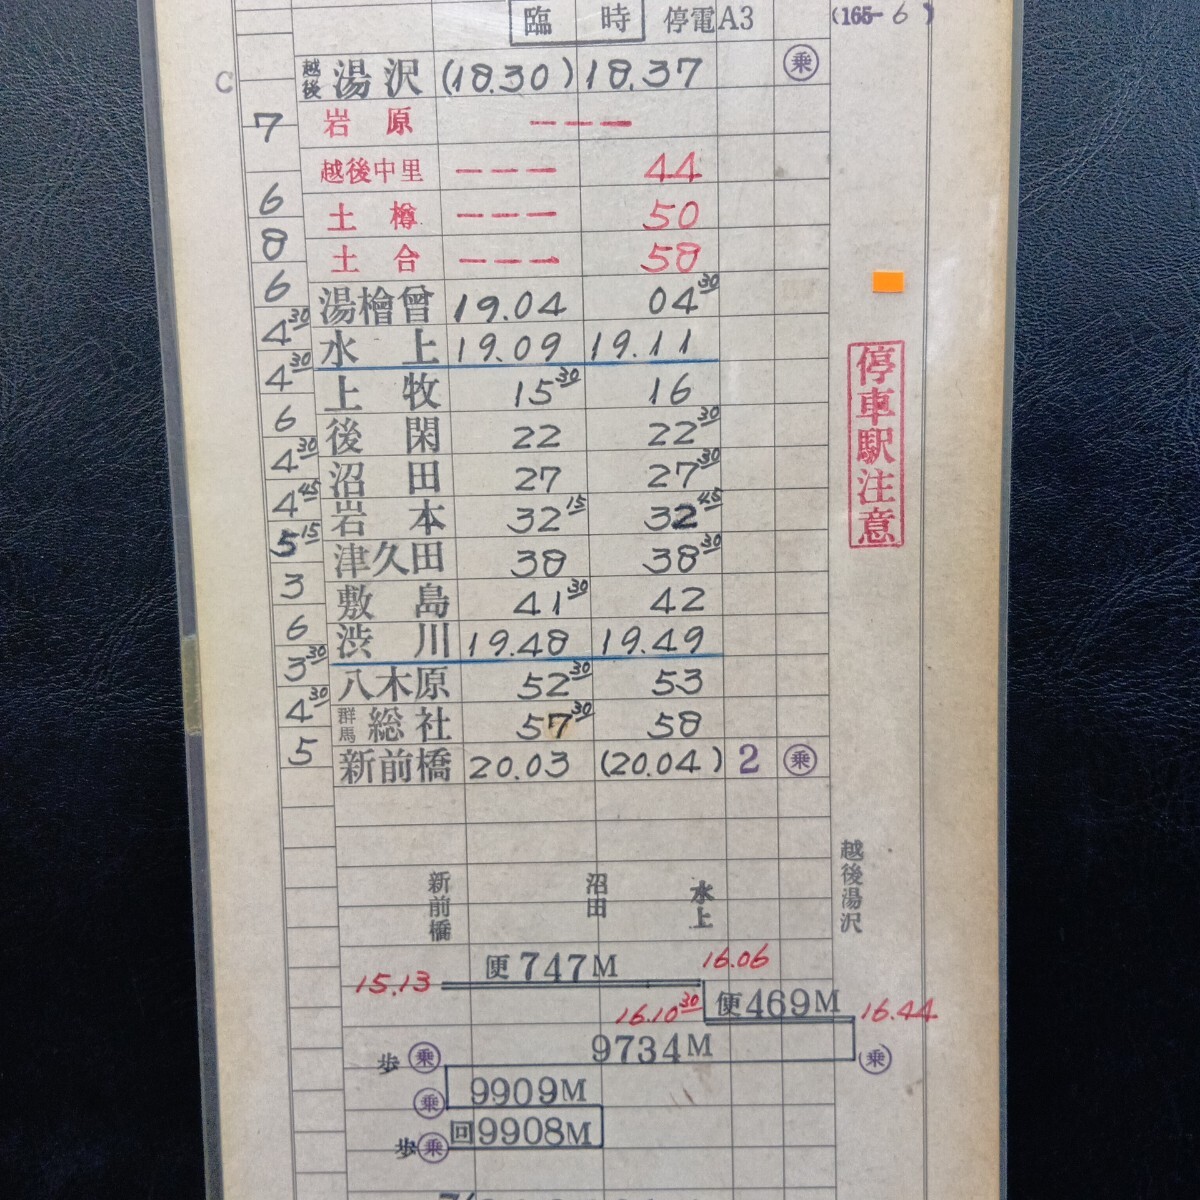 臨時 停電A3 (165-6)
C 越後湯沢 (18.30) 18.37 乗
7 岩原 ---
越後中里 --- 44
6 土樽 --- 50
8 土合 --- 58
6 湯檜曾 19.04 04 30
4 30 水上 19.09 19.11
4 30 上牧 15 30 16
6 後閑 22 22 30
4 30 沼田 27 27 30
4 45 岩本 32 15 32 45
5 15 津久田 38 38 30
3 敷島 41 30 42
6 渋川 19.48 19.49
3 30 八木原 52 30 53
4 30 群馬総社 57 30 58
5 新前橋 20.03 (20.04) 2 乗
停車駅注意
新前橋 沼田 水上 越後湯沢
15.13 便747M 16.06
16.10 30 便469M 16.44
歩 乗 9734M (乗)
乗 9909M
歩 乗 回9908M